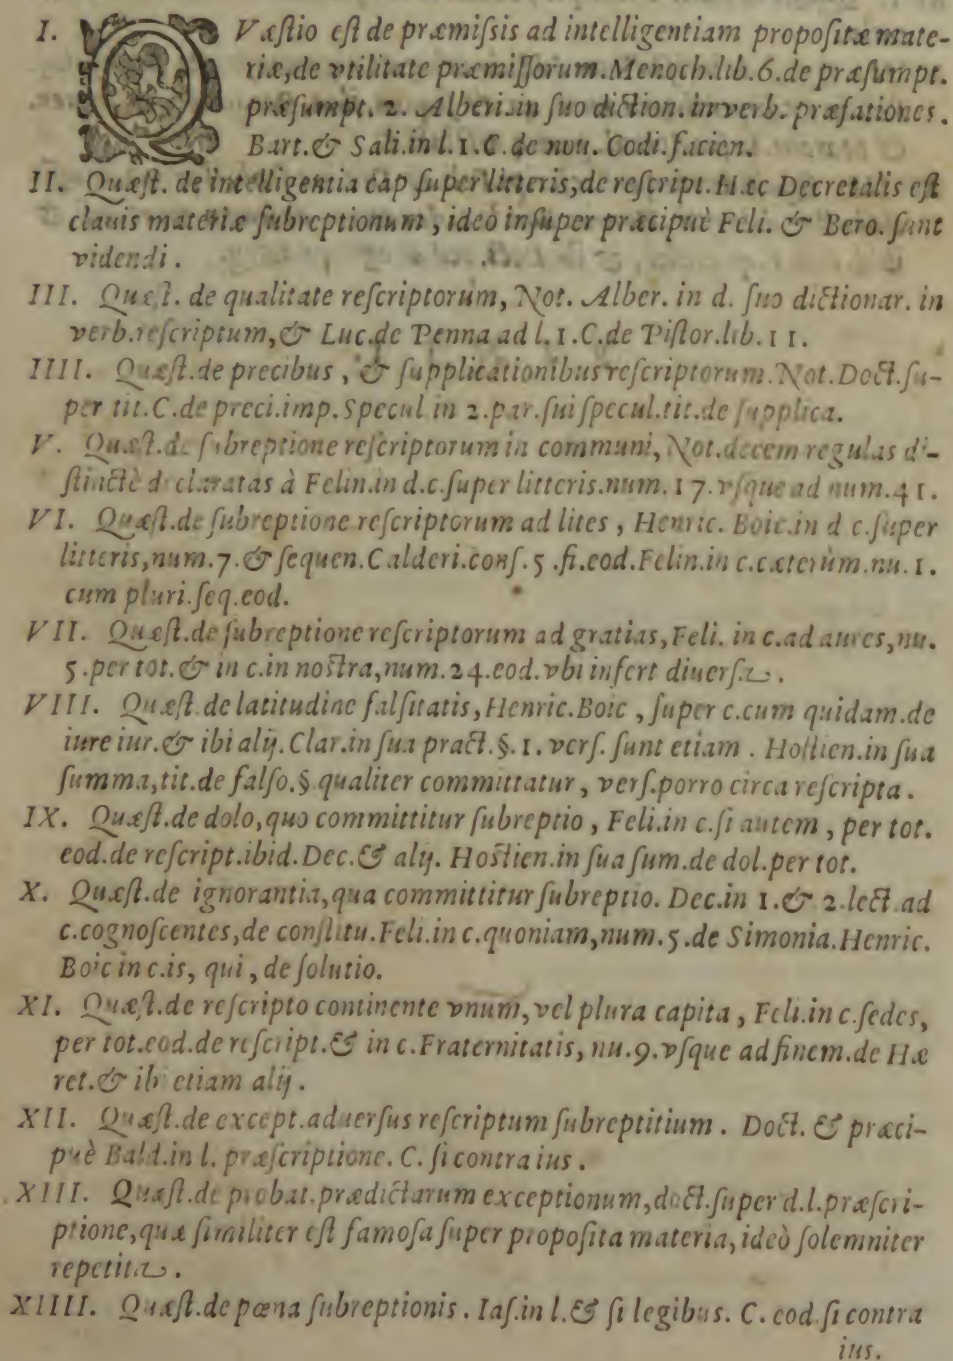 I. QVæſtio eſt de præmiſsis ad intelligentiam propoſitæ mate-
riæ, de vtilitate præmiſſorum. Menoch. lib. 6. de præſumpt.
præſumpt. 2. Alberi. in ſuo diction. in verb. præfationes.
Bart. & Sali. in l. 1. C. de nou. Codi. facien.
II. Quæſt. de intelligentia cap ſuper litteris, de reſcript. Hæc Decretalis eſt
clauis materiæ ſubreptionum, ideò inſuper præcipuè Feli. & Bero. ſunt
videndi.
III. Quæſt. de qualitate reſcriptorum, Not. Alber. in d. ſuo dictionar. in
verb. reſcriptum, & Luc. de Penna ad l. 1. C. de Piſtor. lib. 11.
IIII. Quæſt. de precibus, & ſupplicationibus reſcriptorum. Not. Doct. ſu-
per tit. C. de preci. imp. Specul in 2. par. ſui ſpecul. tit. de ſupplica.
V. Quæſt. de ſubreptione reſcriptorum in communi, Not. decem regulas di-
ſtinctè declaratas à Felin. in d. c. ſuper litteris. num. 17. vſque ad num. 41.
VI. Quæſt. de ſubreptione reſcriptorum ad lites, Henric. Boic. in d c. ſuper
litteris, num. 7. & ſequen. Calderi. conſ. 5. fi. eod. Felin. in c. cæterùm. nu. 1.
cum pluri. ſeq. eod.
VII. Quæſt. de ſubreptione reſcriptorum ad gratias, Feli. in c. ad aures, nu.
5. per tot. & in c. in noſtra, num. 24. eod. vbi infert diuerſa.
VIII. Quæſt. de latitudine falſitatis, Henric. Boic, ſuper c. cum quidam. de
iure iur. & ibi alij. Clar. in ſua pract. §. 1. verſ. ſunt etiam. Hoſtien. in ſua
ſumma, tit. de falſo. § qualiter committatur, verſ. porro circa reſcripta.
IX. Quæſt. de dolo, quo committitur ſubreptio, Feli. in c. ſi autem, per tot.
eod. de reſcript. ibid. Dec. & alij. Hoſtien. in ſua ſum. de dol. per tot.
X. Quæſt. de ignorantia, qua committitur ſubreptio. Dec. in 1. & 2 lect ad
c. cognoſcentes, de conſtitu. Feli. in c. quoniam, num. 5. de Simonia. Henric.
Boic in c. is, qui, de ſolutio.
XI. Quæſt. de reſcripto continente vnum, vel plura capita, Feli. in c. ſedes,
per tot. eod. de reſcript. & in c. Fraternitatis, nu. 9. vſque ad finem. de Hæ
ret. & ibi etiam alij.
XII. Quæſt. de except. aduerſus reſcriptum ſubreptitium. Doct. & præci-
puè Bald. in l. præſcriptione. C. ſi contra ius.
XIII. Quæſt. de probat. prædictarum exceptionum, doct. ſuper d. l. præſcri-
ptione, quæ ſimiliter eſt famoſa ſuper propoſita materia, ideò ſolemniter
repetita.
XIIII. Quæſt. de pœna ſubreptionis. Iaſ. in l. & ſi legibus. C. eod. ſi contra
ius.